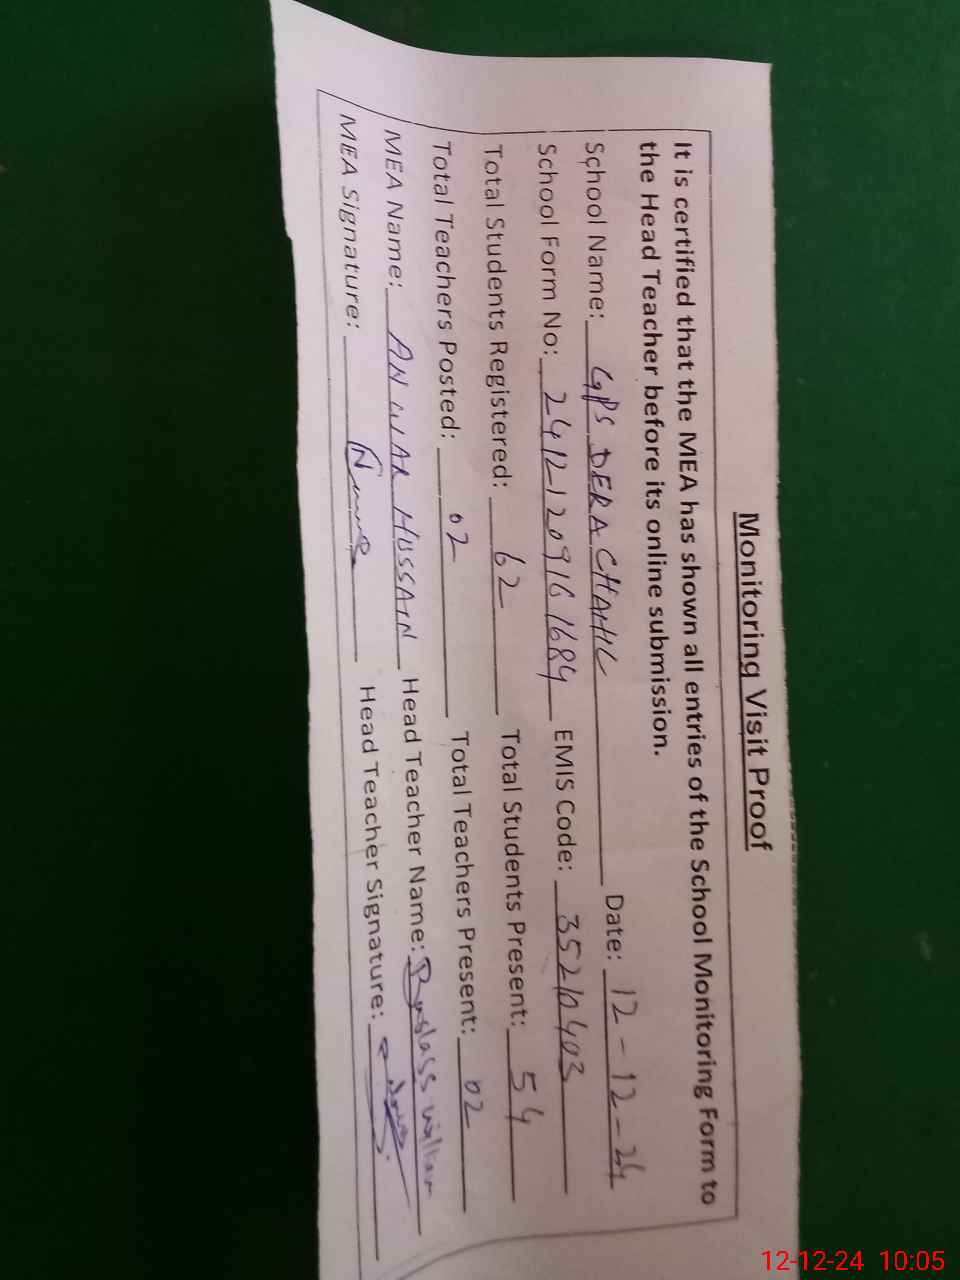 Monitoring Visit Proof
It is certified that the MEA has shown all entries of the School Monitoring Form to
the Head Teacher before its online submission.
School Name: GPS DERA CHAHIL Date: 12-12-24
School Form No: 24121209161684 EMIS Code: 35210403
Total Students Registered: 62 Total Students Present: 54
Total Teachers Posted: 02 Total Teachers Present: 02
MEA Name: ANWAR HUSSAIN Head Teacher Name:
MEA Signature: Head Teacher Signature:
12-12-24 10:05